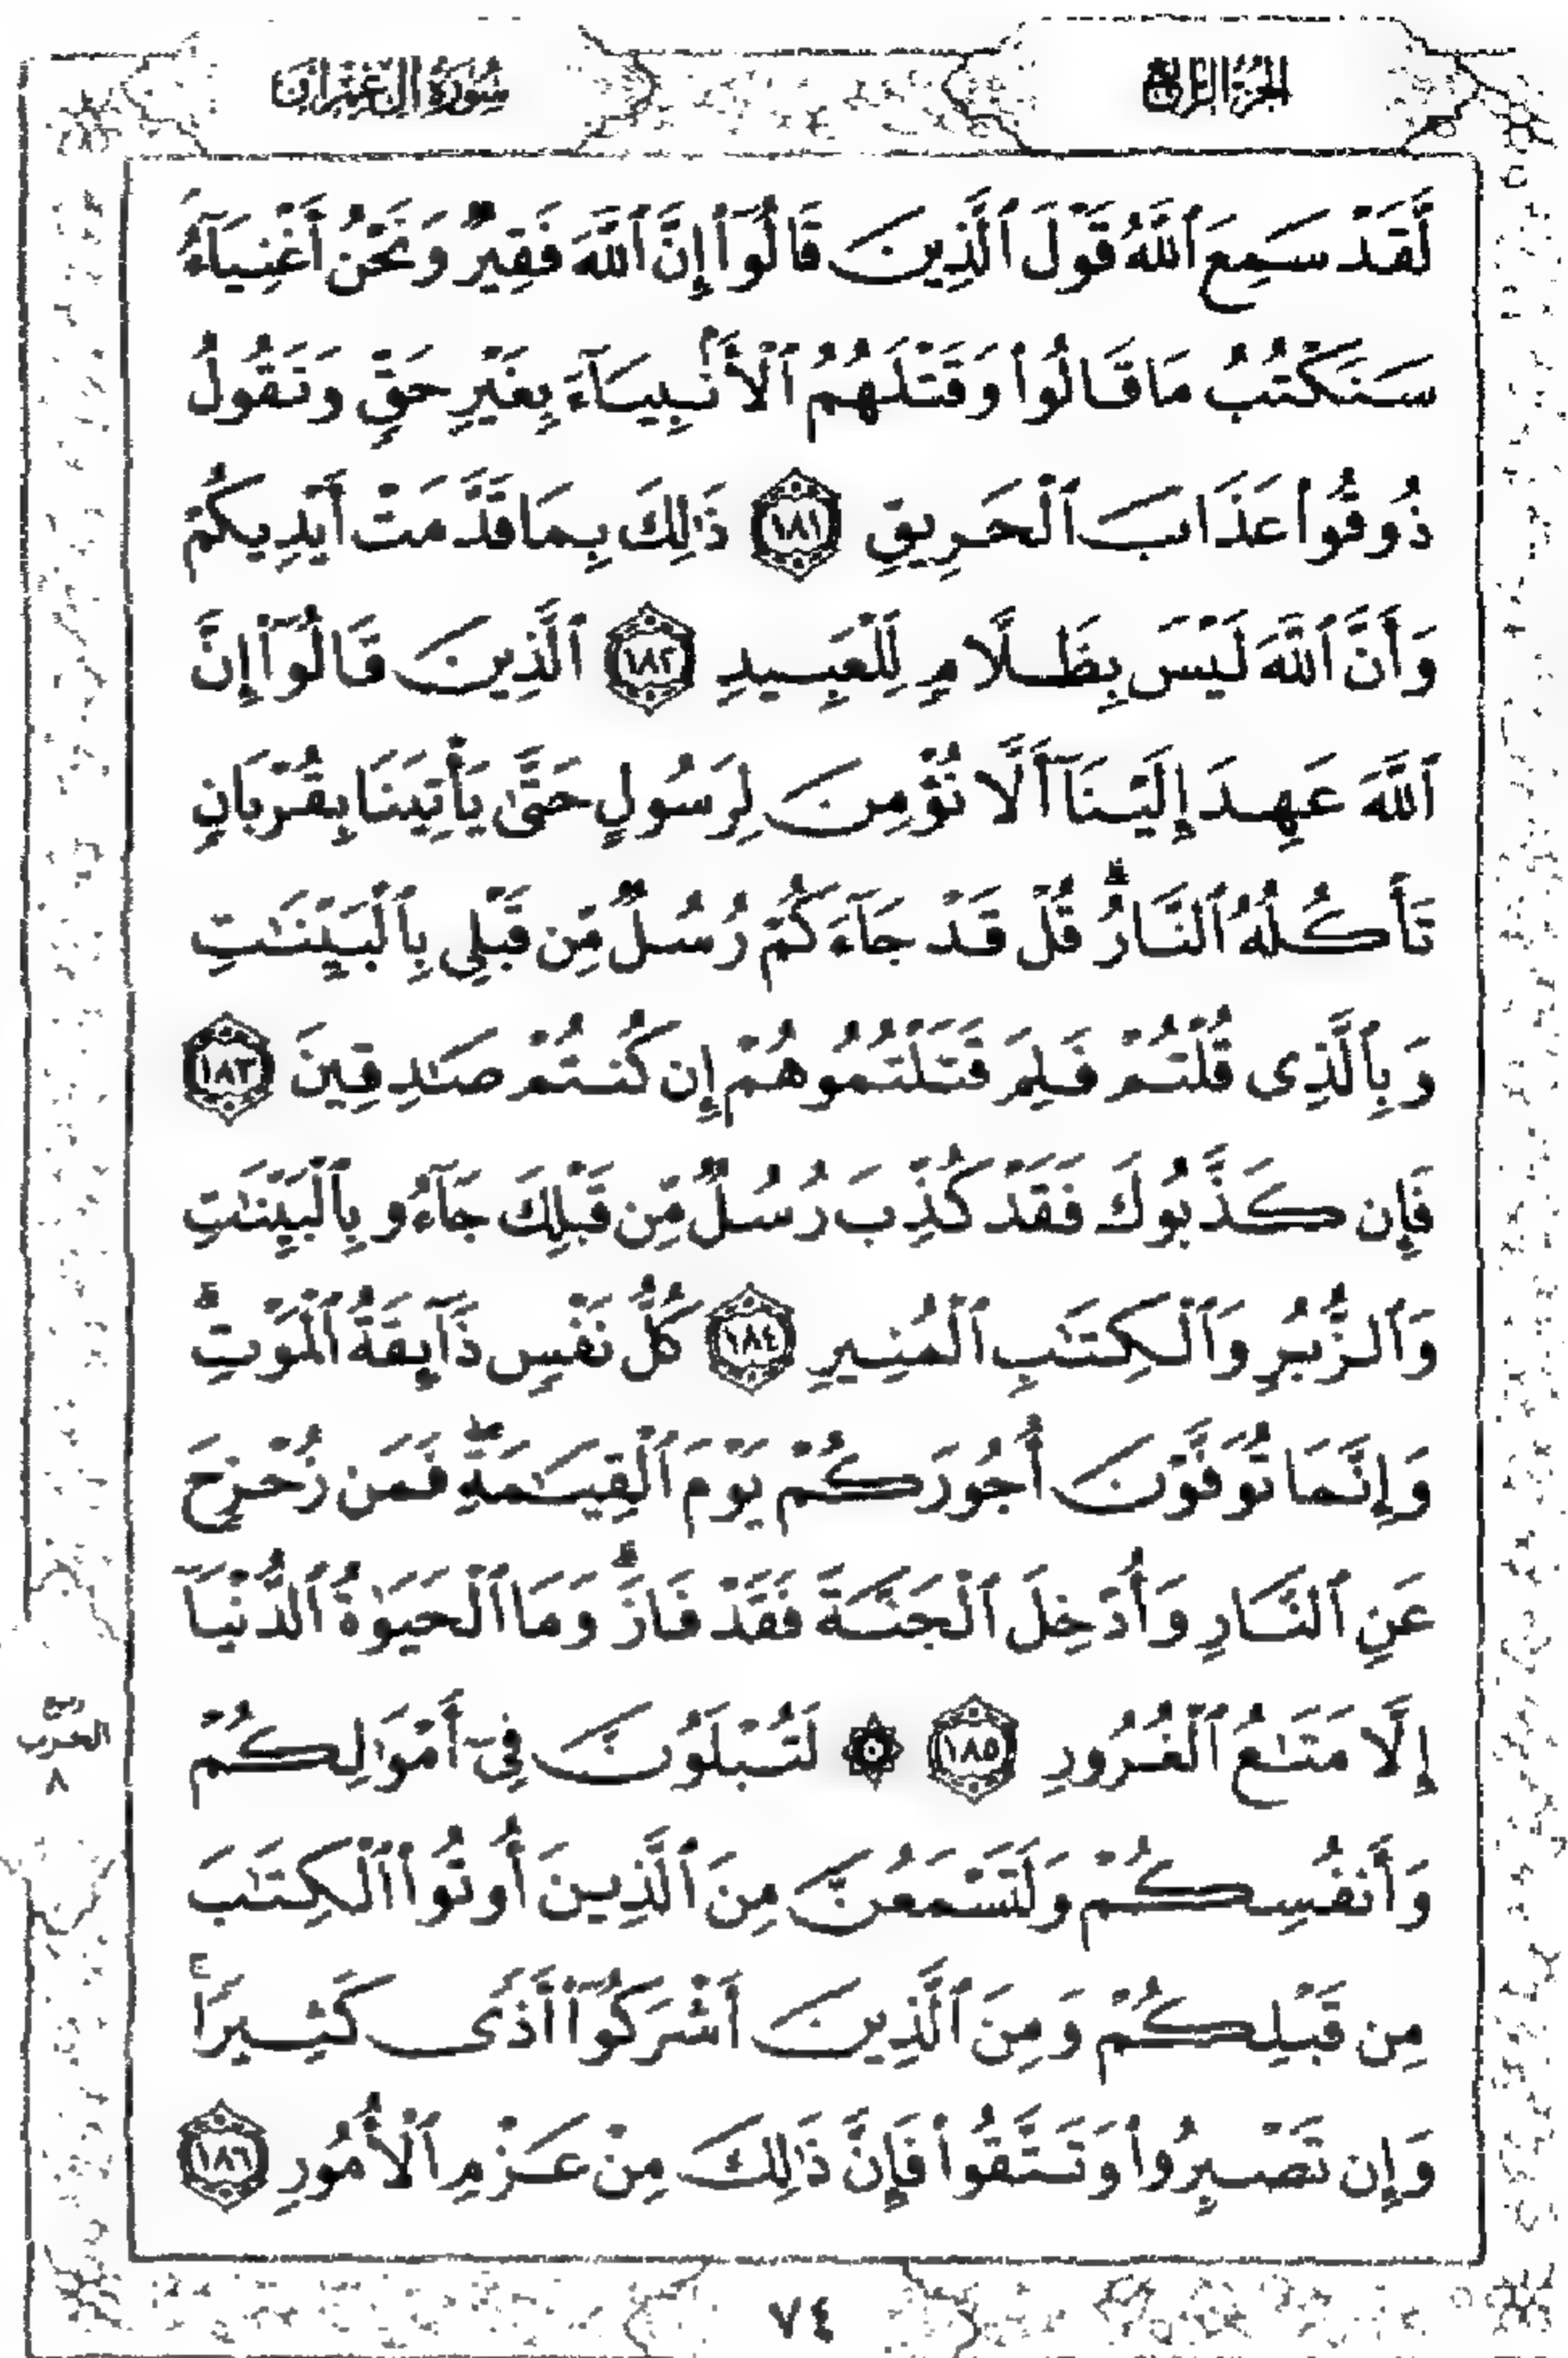 الجزء الرابع
سورة آل عمران
لَّقَدْ سَمِعَ ٱللَّهُ قَوْلَ ٱلَّذِينَ قَالُوٓا۟ إِنَّ ٱللَّهَ فَقِيرٌ وَنَحْنُ أَغْنِيَآءُ
سَنَكْتُبُ مَا قَالُوا۟ وَقَتْلَهُمُ ٱلْأَنۢبِيَآءَ بِغَيْرِ حَقٍّ وَنَقُولُ
ذُوقُوا۟ عَذَابَ ٱلْحَرِيقِ ١٨١ ذَٰلِكَ بِمَا قَدَّمَتْ أَيْدِيكُمْ
وَأَنَّ ٱللَّهَ لَيْسَ بِظَلَّامٍ لِّلْعَبِيدِ ١٨٢ ٱلَّذِينَ قَالُوٓا۟ إِنَّ
ٱللَّهَ عَهِدَ إِلَيْنَآ أَلَّا نُؤْمِنَ لِرَسُولٍ حَتَّىٰ يَأْتِيَنَا بِقُرْبَانٍ
تَأْكُلُهُ ٱلنَّارُ ۗ قُلْ قَدْ جَآءَكُمْ رُسُلٌ مِّن قَبْلِى بِٱلْبَيِّنَٰتِ
وَبِٱلَّذِى قُلْتُمْ فَلِمَ قَتَلْتُمُوهُمْ إِن كُنتُمْ صَٰدِقِينَ ١٨٣
فَإِن كَذَّبُوكَ فَقَدْ كُذِّبَ رُسُلٌ مِّن قَبْلِكَ جَآءُو بِٱلْبَيِّنَٰتِ
وَٱلزُّبُرِ وَٱلْكِتَٰبِ ٱلْمُنِيرِ ١٨٤ كُلُّ نَفْسٍ ذَآئِقَةُ ٱلْمَوْتِ ۗ
وَإِنَّمَا تُوَفَّوْنَ أُجُورَكُمْ يَوْمَ ٱلْقِيَٰمَةِ ۖ فَمَن زُحْزِحَ
عَنِ ٱلنَّارِ وَأُدْخِلَ ٱلْجَنَّةَ فَقَدْ فَازَ ۗ وَمَا ٱلْحَيَوٰةُ ٱلدُّنْيَآ
إِلَّا مَتَٰعُ ٱلْغُرُورِ ١٨٥ ۞ لَتُبْلَوُنَّ فِىٓ أَمْوَٰلِكُمْ
وَأَنفُسِكُمْ وَلَتَسْمَعُنَّ مِنَ ٱلَّذِينَ أُوتُوا۟ ٱلْكِتَٰبَ
مِن قَبْلِكُمْ وَمِنَ ٱلَّذِينَ أَشْرَكُوٓا۟ أَذًى كَثِيرًا ۚ
وَإِن تَصْبِرُوا۟ وَتَتَّقُوا۟ فَإِنَّ ذَٰلِكَ مِنْ عَزْمِ ٱلْأُمُورِ ١٨٦
الحزب
٨
٧٤